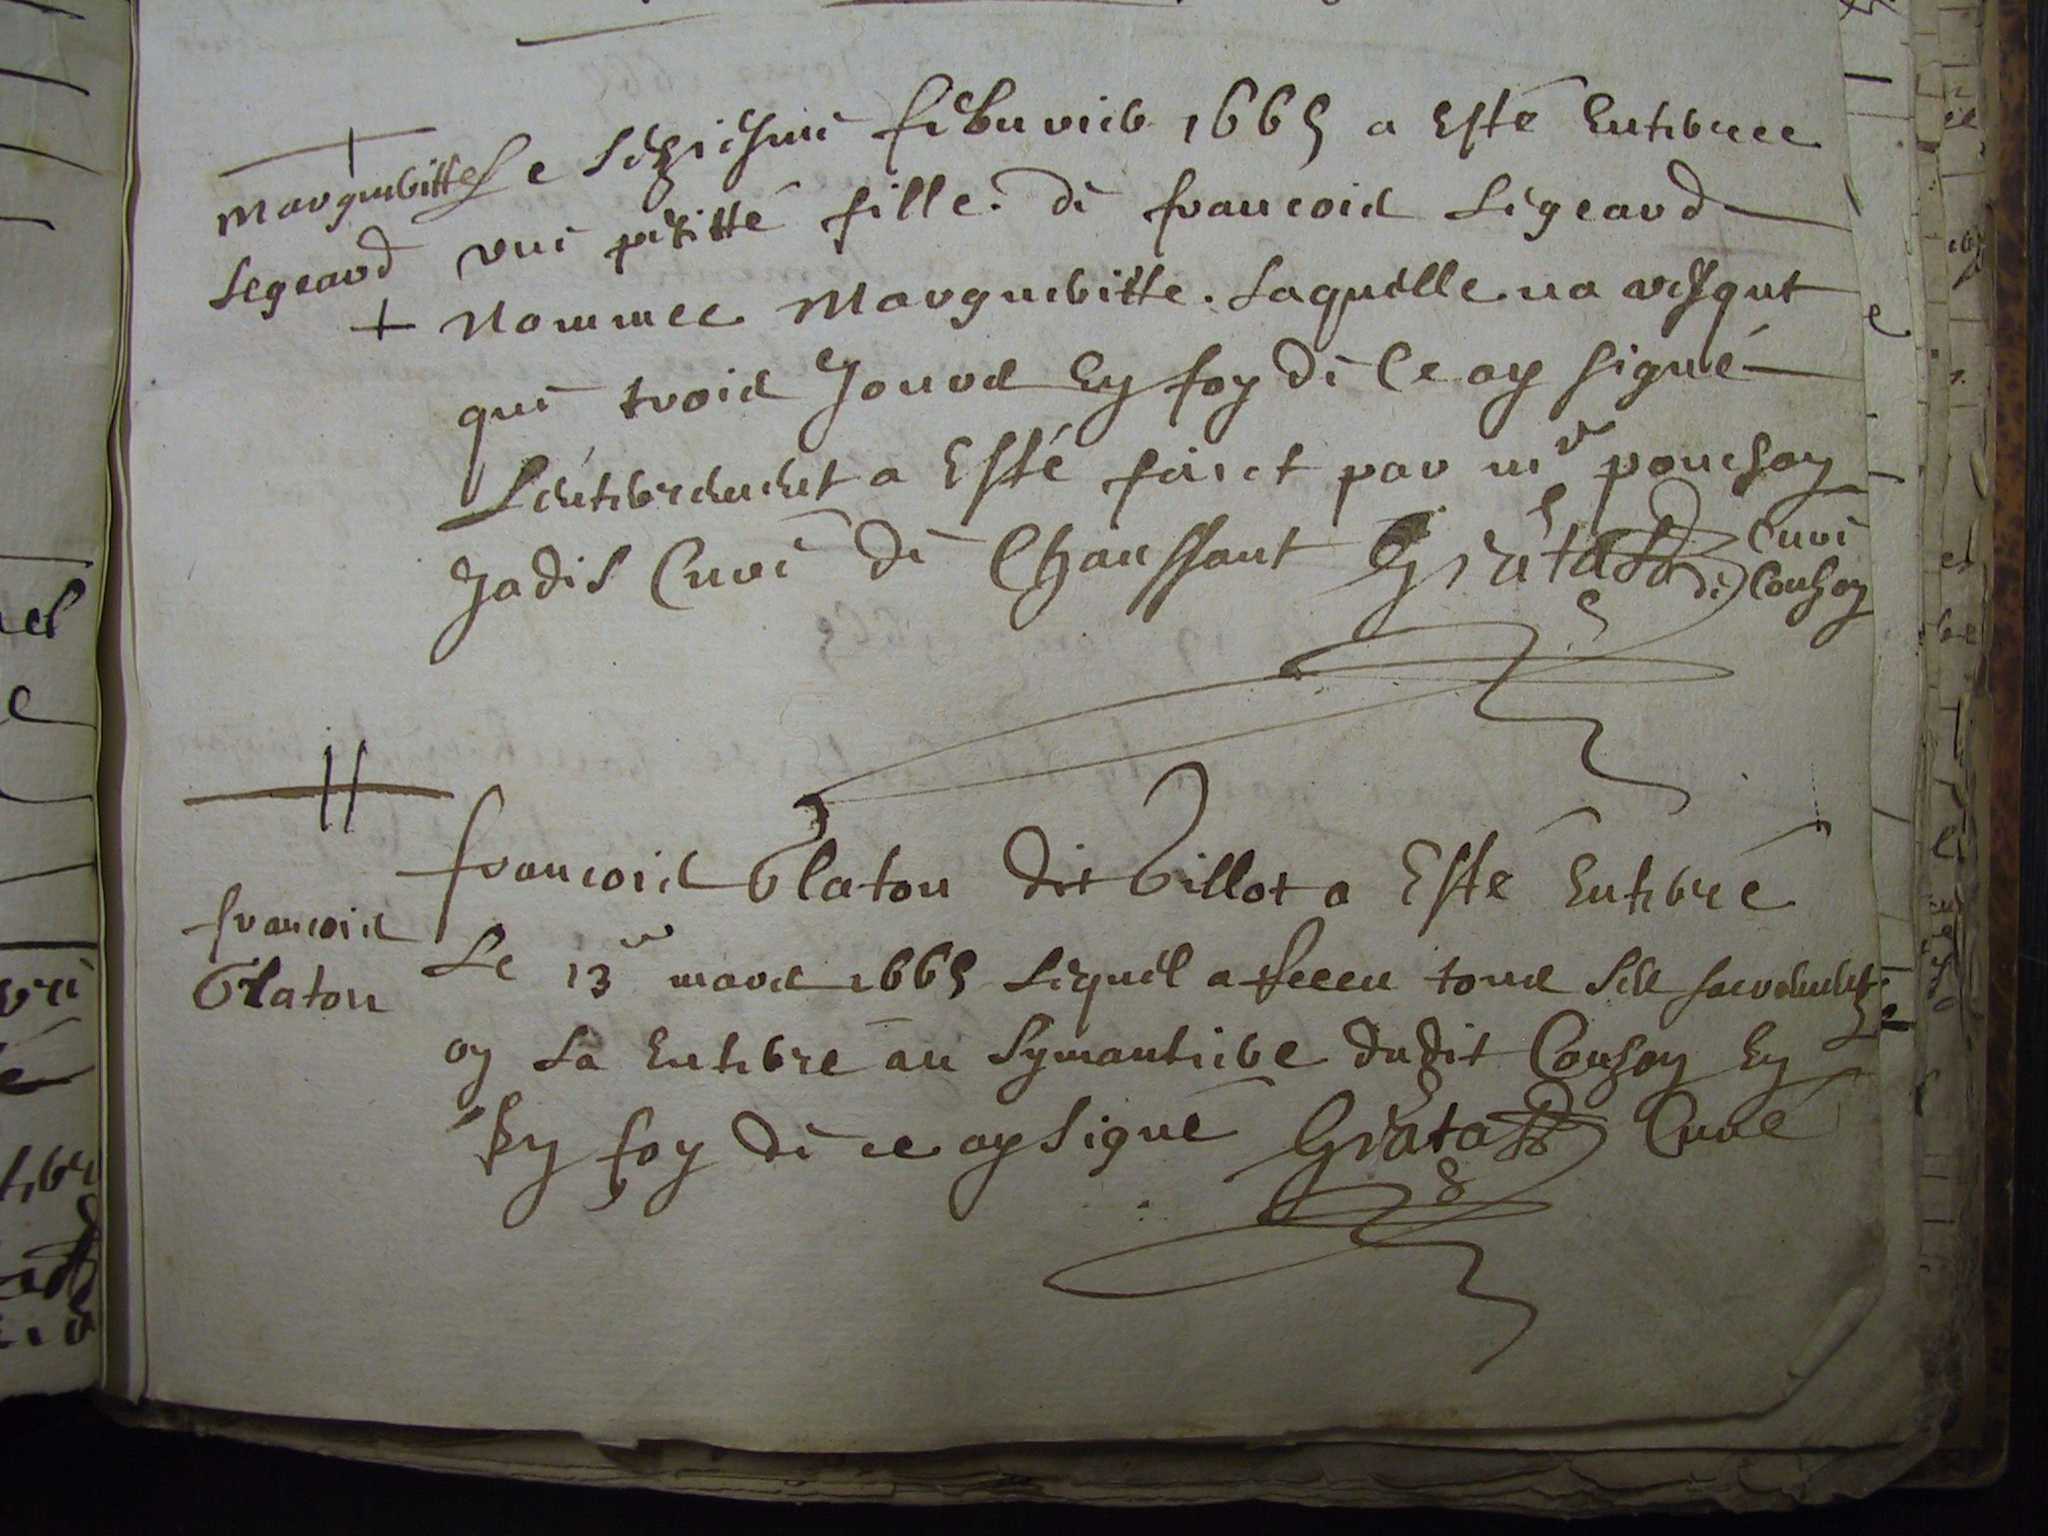 Margueritte
Legeard
+
Le seziesme febuvrier 1665 a Esté Enterree
une petitte fille. de francois Legeard
Nommee Margueritte. Laquelle na vesqut
que trois Jours En foy de Ce ay signé
L'enterement a Esté faict par mr ponchon
Jadis Curé de Chaussant Gratas Curé
de Conzon
francois
Claton
francois Claton dit Billot a Esté Enterré
Le 13 mars 1665 Lequel a Receu tous ses sacrements
on La Enterré au Symantiere dudit Conzon En
En foy de ce ay Signé Gratas Curé